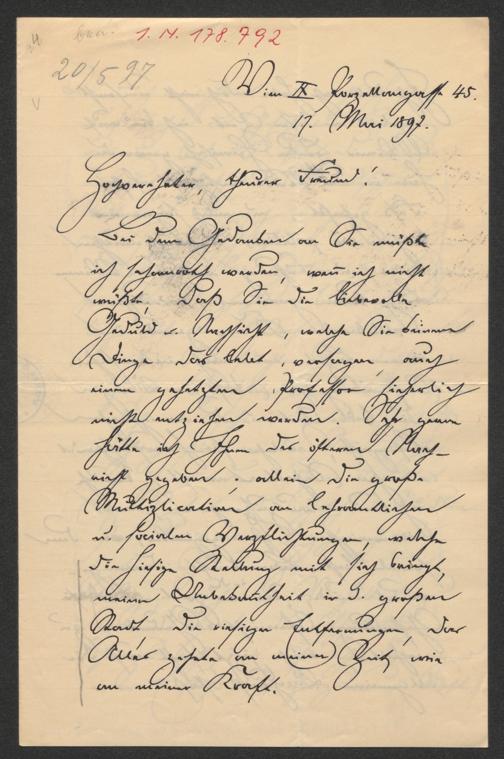 1. N. 178.792
20/5 97
Wien IX Porzellangasse 45.
17. Mai 1892.
Hochverehrter, theurer Freund!
Bei dem Gedanken an Sie müßte
ich schamroth werden, wenn ich nicht
wüßte, daß Sie die liebevolle
Geduld u. Nachsicht, welche Sie
Dinge das versagen, auch
einem gehetzten Professor sicherlich
nicht entziehen werden. Sehr gerne
hätte ich Ihnen des öfteren Nach-
richt gegeben, allein die große
Multiplication an lehramtlichen
u. socialen Verpflichtungen, welche
die hiesige Stellung mit sich bringt,
meine Unbekanntheit in d. großen
Stadt die riesigen Entfernungen, das
Alles zehrte an meiner Zeit, wie
an meiner Kraft.